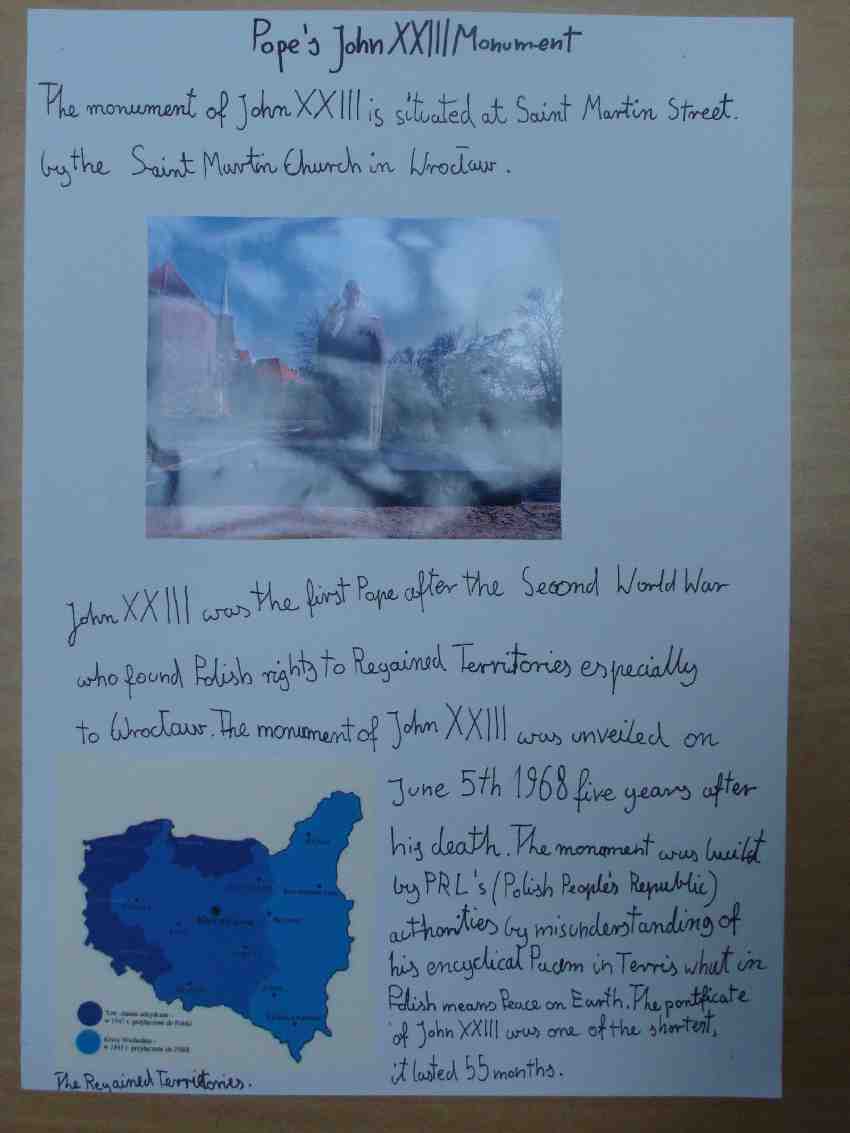 Pope's John XXIII Monument
The monument of John XXIII is situated at Saint Martin Street.
by the Saint Martin Church in Wrocław.
John XXIII was the first Pope after the Second World War
who found Polish rights to Regained Territories especially
to Wrocław. The monument of John XXIII was unveiled on
June 5th 1968 five years after
his death. The monoment was build
by PRL's (Polish People's Republic)
authorities by misunderstanding of
his encyclical Pacem in Terris what in
Polish means Peace on Earth. The pontificate
of John XXIII was one of the shortest,
it lasted 55 months.
w 1945 r. przyłączone do Polski
Kresy Wschodnie -
w 1945 r. przyłączone do ZSRR
The Regained Territories.